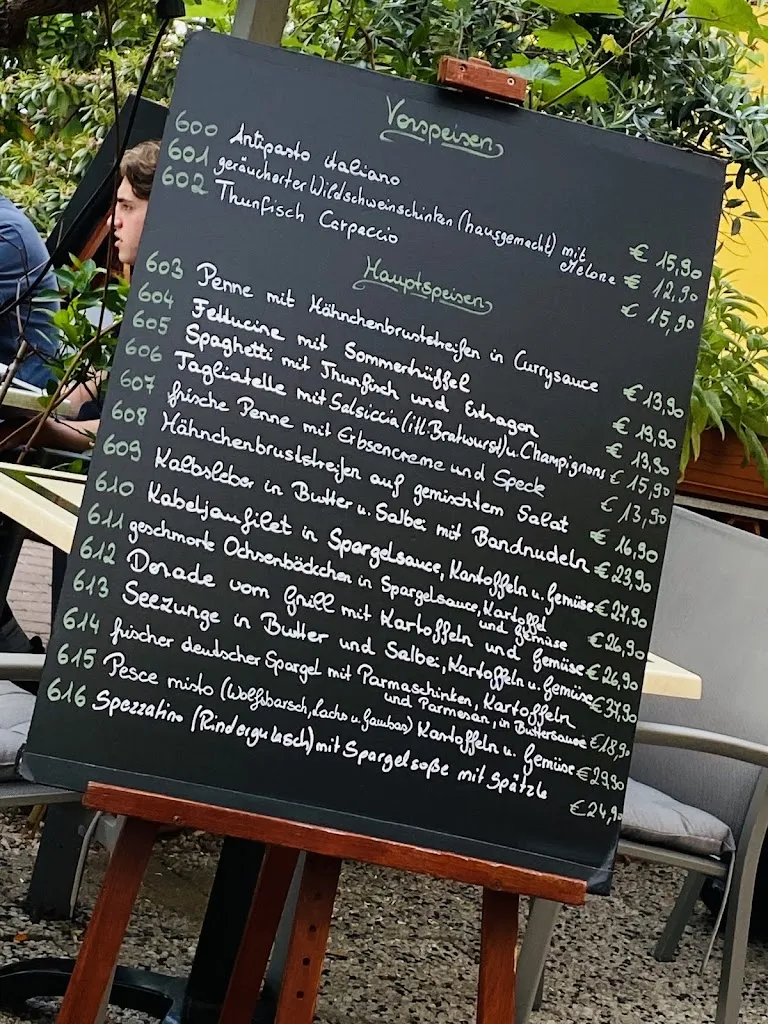 Vorspeisen
600 Antipasto italiano € 15,90
601 geräucherter Wildschweinschinken (hausgemacht) mit
Melone € 12,90
602 Thunfisch Carpaccio € 15,90
Hauptspeisen
603 Penne mit Hähnchenbruststreifen in Currysauce € 13,90
604 Fettucine mit Sommertrüffel € 19,90
605 Spaghetti mit Thunfisch und Estragon € 13,90
606 Tagliatelle mit Salsiccia (itl. Bratwurst) u. Champignons € 15,90
607 frische Penne mit Erbsencreme und Speck € 13,90
608 Hähnchenbruststreifen auf gemischtem Salat € 16,90
609 Kalbsleber in Butter u. Salbei mit Bandnudeln € 23,90
610 Kabeljaufilet in Spargelsauce, Kartoffeln u. Gemüse € 27,90
611 geschmorte Ochsenbäckchen in Spargelsauce, Kartoffel
und Gemüse € 26,90
612 Dorade vom Grill mit Kartoffeln und Gemüse € 26,90
613 Seezunge in Butter und Salbei, Kartoffeln u. Gemüse € 37,90
614 frischer deutscher Spargel mit Parmaschinken, Kartoffeln
und Parmesan, in Buttersauce € 18,90
615 Pesce misto (Wolfsbarsch, Lachs u. Gambas) Kartoffeln u. Gemüse € 29,90
616 Spezzatino (Rindergulasch) mit Spargelsoße mit Spätzle € 24,90